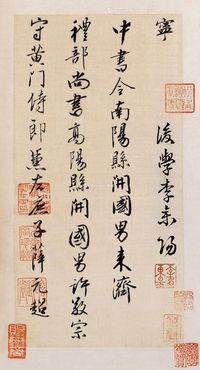 寧 後學李東陽
中書令南陽縣開國男來濟
禮部尚書高陽縣開國男許敬宗
守黃門侍郎兼左庶子薛元超